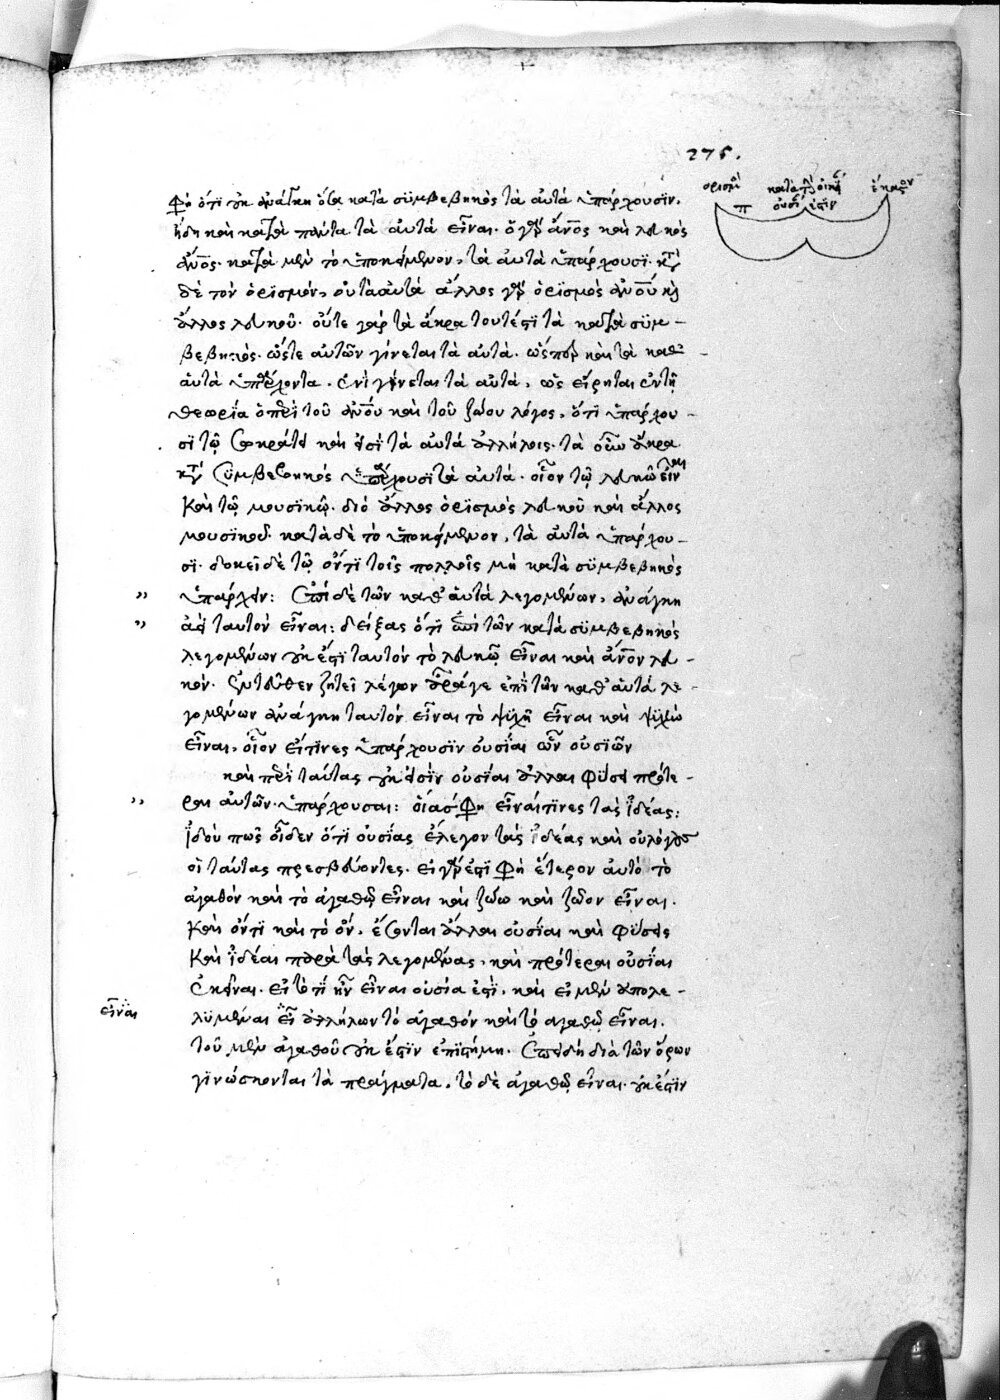 275.
ὁρισμοὶ κατὰ τὴν οἰκείαν ἕκαστον
π οὐσίαν ἐστὶν
φησὶ ὅτι οὐκ ἀνάγκη ὅσα κατὰ συμβεβηκὸς τὰ αὐτὰ ὑπάρχουσιν.
ἤδη καὶ καθὰ πάντα τὰ αὐτὰ εἶναι. ὁ γὰρ ἄνος καὶ λευκὸς
ἄνος. καθὰ μὲν τὸ ὑποκείμενον, τὰ αὐτὰ ὑπάρχουσι. κατὰ
δὲ τὸν ὁρισμὸν, οὐ τὰ αὐτὰ ἄλλος γὰρ ὁρισμὸς ἀνου καὶ
ἄλλος λευκοῦ. οὔτε γὰρ τὰ ἄκρα τουτέστι τὰ κατὰ συμ-
βεβηκός. ὥστε αὐτῶν γίνεται τὰ αὐτὰ. ὥσπερ καὶ τὰ καθ'
αὑτὰ ὑπάρχοντα. γίνεται τὰ αὐτὰ, ὡς εἴρηται ἐν τῇ
θεωρίᾳ ὁ περὶ τοῦ ἀνου καὶ τοῦ ζώου λόγος, ὅτι ὑπάρχου-
σι τῷ Σωκράτει καὶ εἰσὶ τὰ αὐτὰ ἀλλήλοις. τὰ οὖν ἄκρα
κατὰ συμβεβηκὸς ὑπάρχουσι τὰ αὐτά. οἷον τῷ λευκῷ εἶναι
καὶ τῷ μουσικῷ. διὸ ἄλλος ὁρισμὸς λευκοῦ καὶ ἄλλος
μουσικοῦ. κατὰ δὲ τὸ ὑποκείμενον, τὰ αὐτὰ ὑπάρχου-
σι. δοκεῖ δὲ τῷ ὄντι τοῖς πολλοῖς μὴ κατὰ συμβεβηκὸς
ὑπάρχειν: ἐπὶ δὲ τῶν καθ' αὑτὰ λεγομένων, ἀνάγκη
ἀεὶ ταυτὸν εἶναι: δείξας ὅτι ἐπὶ τῶν κατὰ συμβεβηκὸς
λεγομένων οὐκ ἔστι ταυτὸν τὸ λευκῷ εἶναι καὶ ἄνον λευ-
κόν. ἐντεῦθεν ζητεῖ λέγων ἆράγε ἐπὶ τῶν καθ' αὑτὰ λε-
γομένων ἀνάγκη ταυτὸν εἶναι τὸ ψυχῇ εἶναι καὶ ψυχὴν
εἶναι. οἷον εἴ τινες ὑπάρχουσιν οὐσίαι ὧν οὐσιῶν
καὶ περὶ ταύτας οὐκ εἰσὶν οὐσίαι ἄλλαι φύσει πρότε-
ραι αὐτῶν ὑπάρχουσαι: οἵας φησὶ εἶναί τινες τὰς ἰδέας:
ἰδοὺ πῶς οἶδεν ὅτι οὐσίας ἔλεγον τὰς ἰδέας καὶ οὐ λόγους
οἱ ταύτας πρεσβεύοντες. εἰ γὰρ ἐστι φησὶ ἕτερον αὐτὸ τὸ
ἀγαθὸν καὶ τὸ ἀγαθῷ εἶναι καὶ ζώω καὶ ζῶον εἶναι.
καὶ ὄντι καὶ τὸ ὄν, ἔσονται ἄλλαι οὐσίαι καὶ φύσεις
καὶ ἰδέαι παρὰ τὰς λεγομένας, καὶ πρότεραι οὐσίαι
ἐκεῖναι. εἰ τὸ τί ἦν εἶναι οὐσία ἐστὶ. καὶ εἰ μὲν ἀπολε-
εἶναι
λυμέναι ἀλλήλων τὸ ἀγαθὸν καὶ τὸ ἀγαθῷ εἶναι.
τοῦ μὲν ἀγαθοῦ οὐκ ἔστιν ἐπιστήμη. ἐπειδὴ διὰ τῶν ὅρων
γινώσκονται τὰ πράγματα. τὸ δὲ ἀγαθῷ εἶναι οὐκ ἔστιν